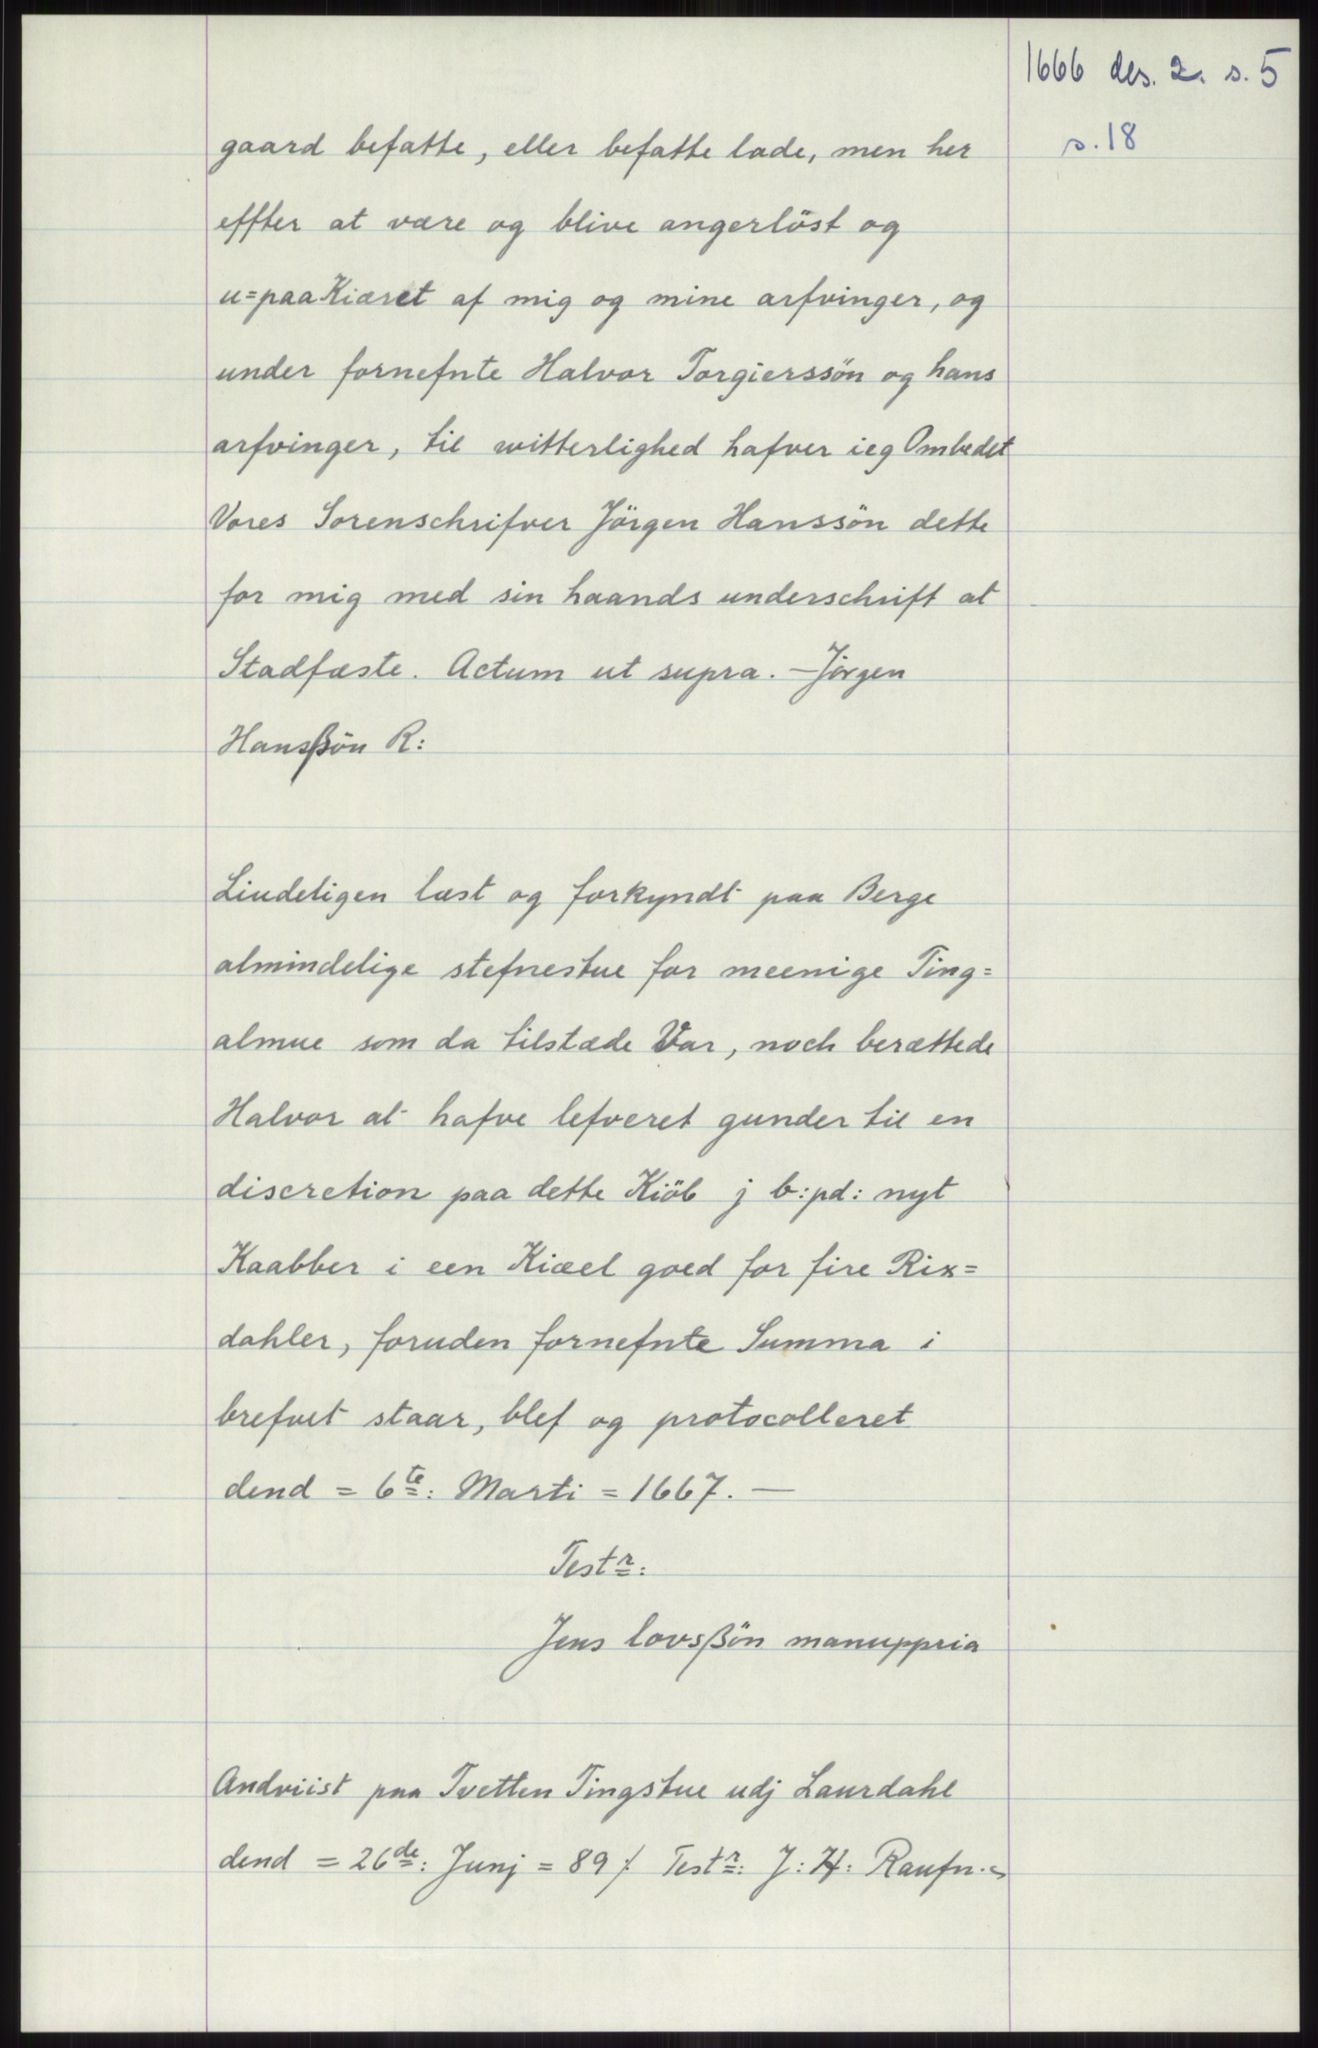 1666 des. 2. s. 5
s. 18
gaard befatte, eller befatte lade, men her
effter at være og blive angerløst og
u=paaKiæret af mig og mine arfvinger, og
under fornefnte Halvor Torgierssön og hans
arfvinger, til witterlighed hafver ieg Ombedet
Vores Sorenschrifver Jörgen Hanssön dette
for mig med sin haands underschrift at
Stadfæste. Actum ut supra. — Jörgen
Hansßön R:
Liudeligen læst og forkyndt paa Berge
almindelige stefnestue for meenige Ting=
almue som da tilstæde Var, noch berættede
Halvor at hafve lefveret gunder til en
discretion paa dette Kiöb j b:pd: nyt
Kaabber i een Kiæel goed for fire Rix=
dahler, foruden fornefnte Summa i
brefvet staar, blef og protocolleret
dend = 6te: Marti = 1667. —
Testr:
Jens lovsßön manuppria
Andviist paa Tvetten Tingstue udj Laurdahl
dend = 26de: Junj = 89 ⁒ Testr: J: H: Raufn.